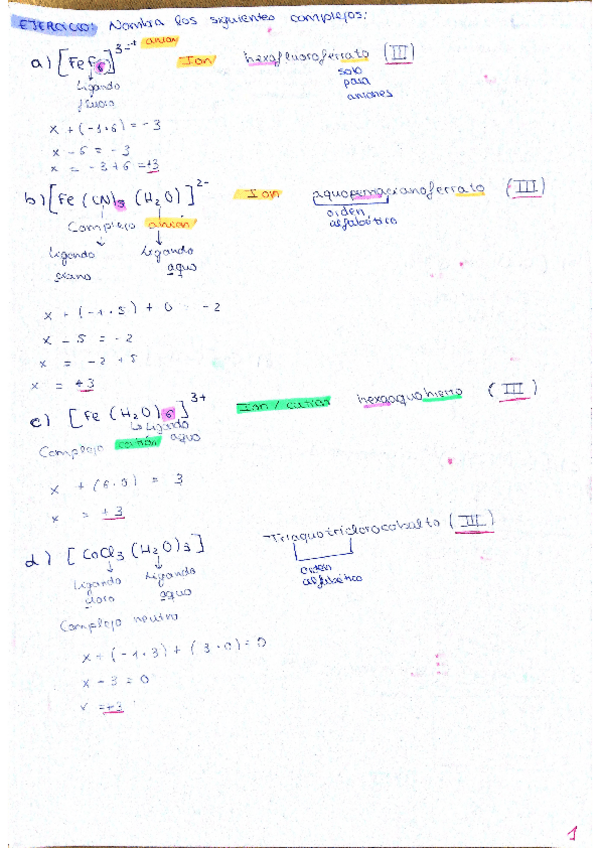 EJERCICIO: Nombra los siguientes complejos:
a) [FeF6]3- → anión Ion hexafluoroferrato (III)
Ligando
fluoro
solo
para
aniones
x + (-1·6) = -3
x - 6 = -3
x = -3+6 = +3
b) [Fe(CN)5(H2O)]2- Ion aquopentacianoferrato (III)
orden
alfabético
Complejo anión
Ligando
ciano
Ligando
aquo
x + (-1·5) + 0 = -2
x - 5 = -2
x = -2 + 5
x = +3
c) [Fe(H2O)6]3+ Ion / catión hexaaquohierro (III)
Ligando
aquo
Complejo catión
x + (6·0) = 3
x = +3
d) [CoCl3(H2O)3] Triaquotriclorocobalto (III)
orden
alfabético
Ligando
cloro
Ligando
aquo
Complejo neutro
x + (-1·3) + (3·0) = 0
x - 3 = 0
x = +3
1